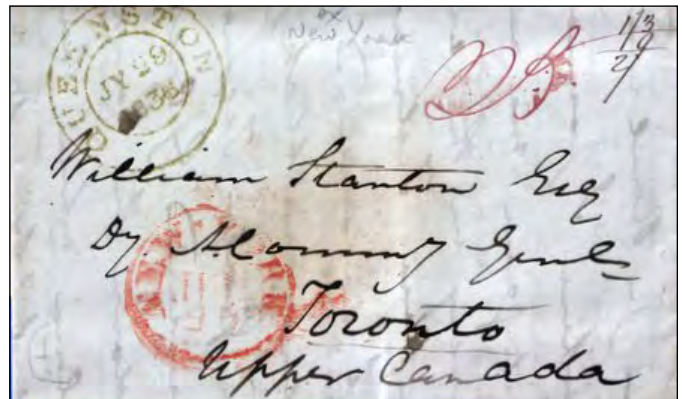 QUEENSTON
JY 29
1838
ex
New York
1/3
9
2/
William Stanton Esq
Dy. A. Commy Genl
Toronto
Upper Canada
NEW YORK